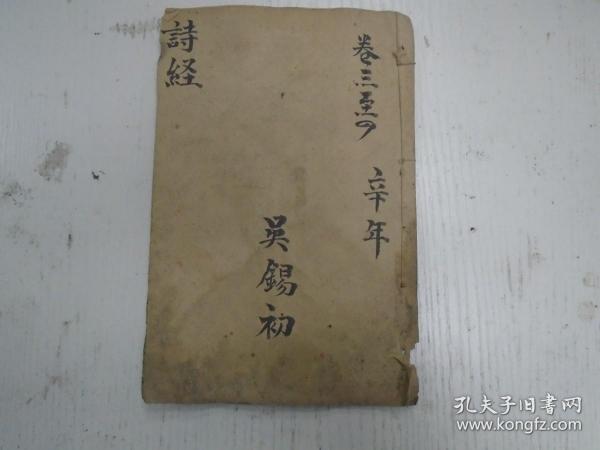 卷三至四
辛年
吴錫初
詩経
孔夫子旧書网
www.kongfz.com